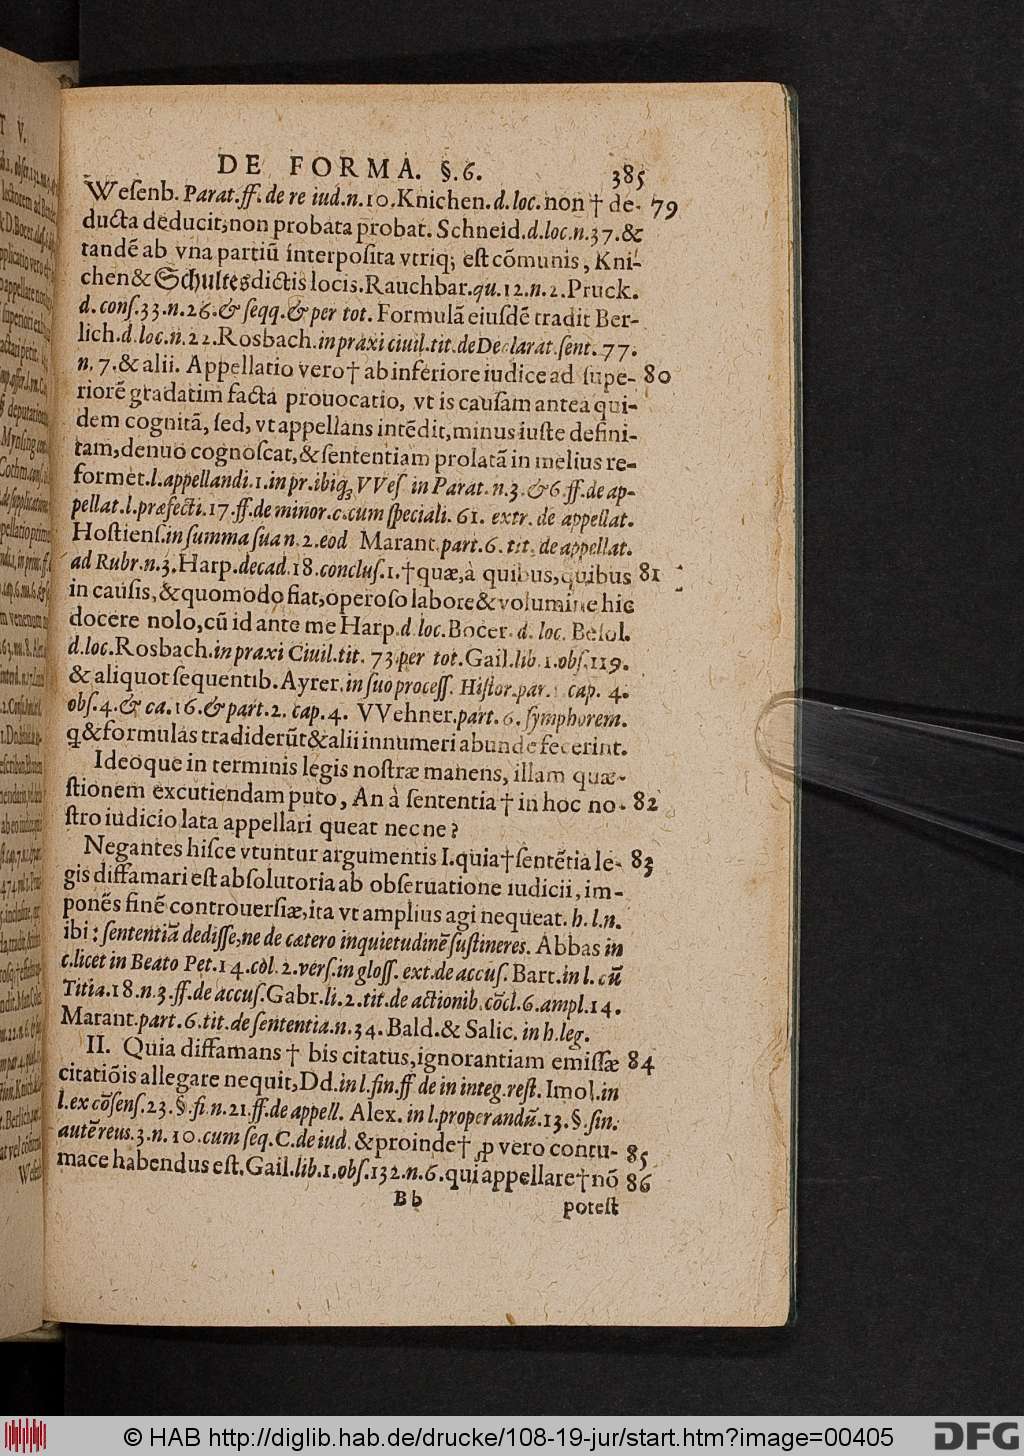 DE FORMA. §.6. 385
Weſenb. Parat.ff. de re iud.n.10.Knichen.d.loc.non † de- 79
ducta deducit,non probata probat. Schneid.d.loc.n.37.&
tandē ab vna partiū interpoſita vtriq; eſt cōmunis, Kni-
chen & Schultes dictis locis.Rauchbar.qu.12.n.2.Pruck.
d. conſ.33.n.26.& ſeqq.& per tot. Formulā eiuſdē tradit Ber-
lich.d.loc.n.22.Rosbach.in praxi ciuil.tit.de Declarat.ſent.77.
n.7.& alii. Appellatio vero † ab inferiore iudice ad ſupe- 80
riorē gradatim facta prouocatio, vt is cauſam antea qui-
dem cognitā, ſed, vt appellans intēdit,minus iuſte defini-
tam,denuo cognoſcat,& ſententiam prolatā in melius re-
formet.l.appellandi.1.in pr.ibiq; VVeſ in Parat.n.3.& 6.ff.de ap-
pellat.l.præfecti.17.ff.de minor.c.cum ſpeciali.61. extr. de appellat.
Hoſtienſ.in ſumma ſua n.2.eod Marant.part.6.tit.de appellat.
ad Rubr.n.3.Harp.decad.18.concluſ.1.†quæ,à quibus,quibus 81
in cauſis,& quomodo fiat,operoſo labore & volumine hic
docere nolo,cū id ante me Harp.d.loc.Bocer. d. loc. Beſol.
d.loc.Rosbach.in praxi Ciuil.tit. 73.per tot.Gail.lib.1.obſ.119.
& aliquot ſequentib.Ayrer.in ſuo proceſſ. Hiſtor.par. cap. 4.
obſ.4.& ca.16.& part.2. cap.4. VVehner.part.6.ſymphorem.
q & formulas tradiderūt & alii innumeri abunde fecerint.
Ideoque in terminis legis noſtræ manens, illam quæ-
ſtionem excutiendam puto, An à ſententia † in hoc no- 82
ſtro iudicio lata appellari queat nec ne?
Negantes hiſce vtuntur argumentis I.quia†ſentētia le- 83
gis diffamari eſt abſolutoria ab obſeruatione iudicii, im-
ponēs finē controuerſiæ,ita vt amplius agi nequeat. h.l.n.
ibi: ſententiā dediſſe,ne de cætero inquietudinē ſuſtineres. Abbas in
c.licet in Beato Pet.14.col.2.verſ.in gloſſ. ext.de accuſ. Bart.in l. cū
Titia.18.n.3.ff.de accuſ.Gabr.li.2.tit.de actionib.cōcl.6.ampl.14.
Marant.part.6.tit.de ſententia.n.34. Bald.& Salic. in h.leg.
II. Quia diffamans † bis citatus,ignorantiam emiſſæ 84
citatiōis allegare nequit,Dd.in l.fin.ff de in integ.reſt. Imol.in
l.ex cōſenſ.23.§.fi.n.21.ff.de appell. Alex. in l.properandū.13.§.ſin.
autē reus.3.n.10.cum ſeq.C.de iud. & proinde † ꝓ vero contu- 85
mace habendus eſt.Gail.lib.1.obſ.132.n.6.qui appellare†nō 86
Bb poteſt
© HAB http://diglib.hab.de/drucke/108-19-jur/start.htm?image=00405
DFG